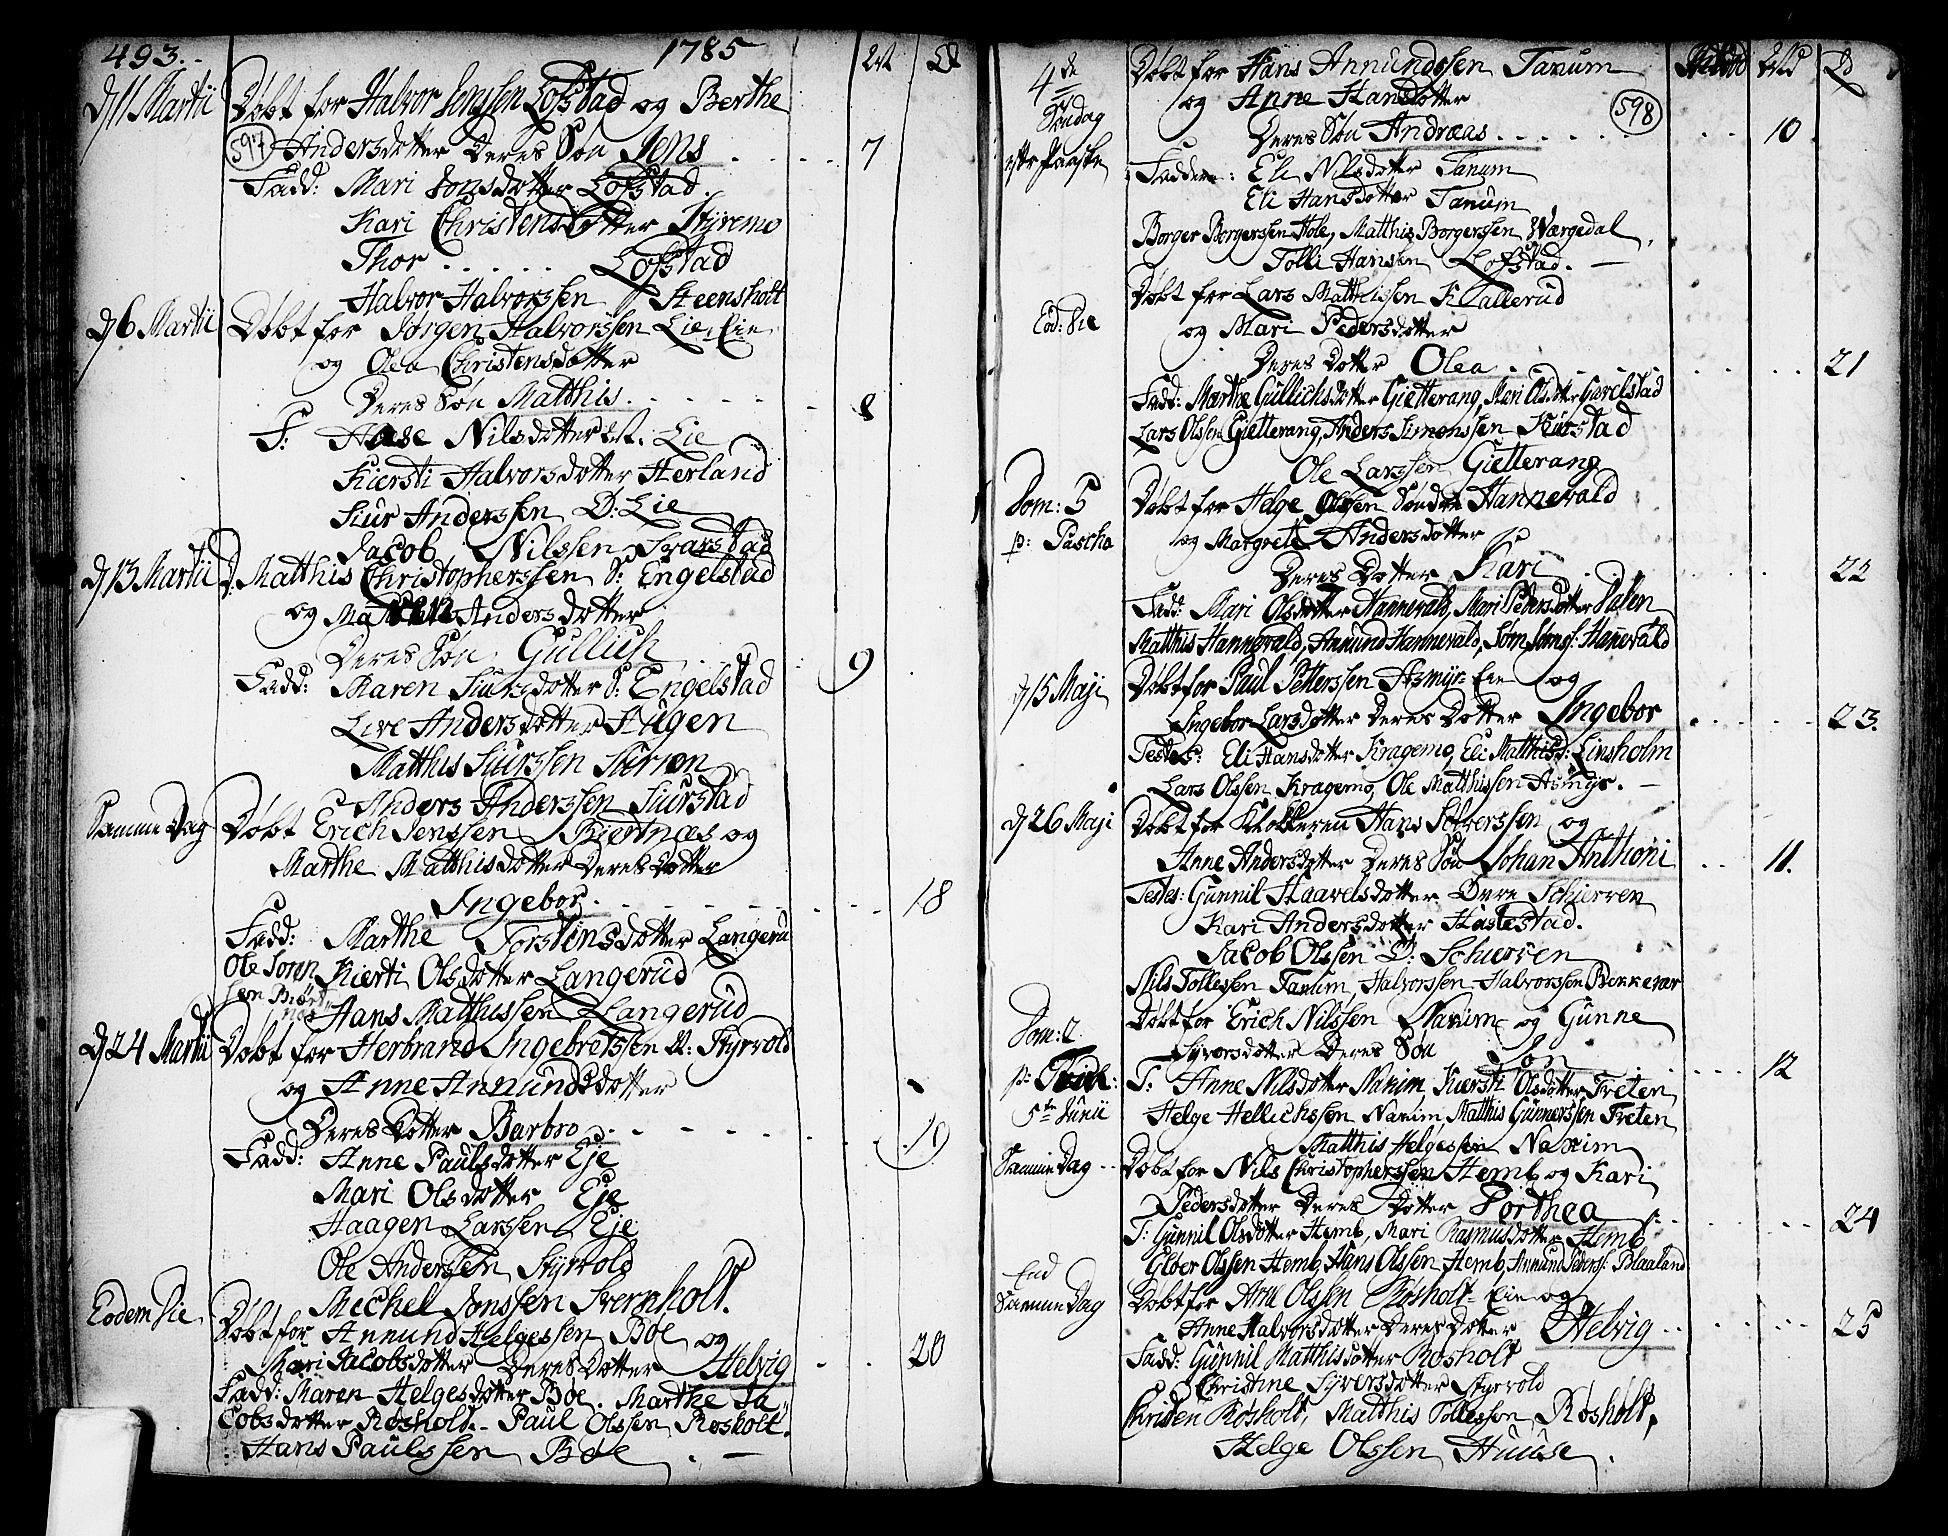 493. 1785
d 11 Martii Døbt for Halvor Jenssen Lofstad og Berthe
597 Andersdotter Deres Søn Jens . . . . 7
Fadd: Mari Jonsdotter Lofstad.
Kari Christensdotter Styremo
Thor . . . . . Lofstad
Halvor Halvorssen Steensholt
d 6 Martii Døbt for Jørgen Halvorssen Lie Eie
og Olea Christensdotter
Deres Søn Matthis . . . . . . 8
F: Aase Nilsdotter Lie
Kiersti Halvorsdotter Herland
Siur Anderssen D: Lie
Jacob Nilssen Svarstad
d 13 Martii D: Matthis Christopherssen S: Engelstad
og Andersdotter
Deres Søn Gullich . . . 9
Fadd: Maren Siursdotter S: Engelstad
Live Andersdotter Haugen
Matthis Siurssen
Anders Anderssen Siurstad
Samme Dag Døbt Erich Jenssen Biertnæs og
Marthe Matthisdotter Deres Dotter
Ingebor . . . . . . . 18
Fadd: Marthe Torstensdotter Langeru
Ole Soren Kierti Olsdotter Langerud
sen Biert
næs Hans Matthissen Langerud
d 24 Martii Døbt for Herbrand Ingebretssen N: Styrvold
og Anne Annundsdotter
Deres Dotter Barbro . . . . . . . 19
Fadd: Anne Paulsdotter Eje
Mari Olsdotter Eje
Haagen Larssen Eje
Ole Anderssen Styrvold
Michel Jonssen Svernholt.
Eodem Die Døbt for Annund Helgessen Bøe og
Mari Jacobsdotter Deres Dotter Helvig . . . 20
Fadd: Maren Helgesdotter Bøe. Marthe Ja
cobsdotter Røsholt. Paul Olssen Røsholt.
Hans Paulssen Bøe. —
4de Døbt for Hans Annundssen Tanum
Søndag og Anne Hansdotter 598
Deres Søn Andreas . . . . . . . 10
eftr Paaske Faddere: Eli Nilsdotter Tanum
Eli Hansdotter Tanum
Borger Borgerssen Hole, Matthis Borgerssen Wærgedal,
Tolli Hansen Lofstad. —
Døbt for Lars Matthissen Kallerud
Eod: Die og Mari Pedersdotter
Deres Dotter Olea . . . . . . . 21
Fadd: Marthe Gullichsdotter Gietterang, Mari Olsdotter Gavelstad
Lars Olssen Gietterang, Anders Simonssen Siurstad
Ole Larssen Gietterang
Dom: 5 Døbt for Helge Olssen Søndre Hannevald
p: Pascha og Margrete Andersdotter
Deres Dotter Kari . . . . . 22
Fadd: Mari Olsdotter Hannevald, Mari Pedersdotter Valen
Matthis Hannevald, Annund Hannevald, Søren Hannevald
d 15 Maji Døbt for Paul Petterssen Asmyr Eie og
Ingebor Larsdotter Deres Dotter Ingebor . . . . . 23.
Testes: Eli Hansdotter Kragemo, Eli Matthisd: Linsholm
Lars Olssen Kragemo, Ole Matthissen Asmyr. —
d 26 Maji Døbt for Klokkeren Hans Solverssen og
Anne Andersdotter Deres Søn Johan Anthoni . . . 11.
Testes: Gunnil Haavelsdotter Øvre Schierven
Kari Andersdotter Hastestad.
Jacob Olssen D: Schierven
Nils Tollessen Tanum, Halvorssen Halvorssen Bekkevar
Døbt for Erich Nilssen Narum og Gunne
Dom: 2 Syversdotter Deres Søn Jon . . . . 12
p: Trin: T: Anne Nilsdotter Narim, Kiersti Olsdotter Treten
5te Junii Helge Hellichssen Narim, Matthis Gunnerssen Treten
Matthis Helgessen Narim
Samme Dag Døbt for Nils Christopherssen Hemb og Kari
Pedersdotter Deres Dotter Dorthea . . . . . 24
T: Gunnil Olsdotter Hemb, Mari Rasmusdotter Hemb
Elover Olssen Hemb, Hans Olssen Hemb, Annund Peders: Blaaland
End
Samme Dag Døbt for Arne Olssen Røsholt Eie og
Anne Halvorsdotter Deres Dotter Helvig . . . . . 25
Fadd: Gunnil Matthisdotter Røsholt
Christine Syversdotter Styrvold
Christen Røsholt, Matthis Tollessen Røsholt,
Helge Olssen Huuse.